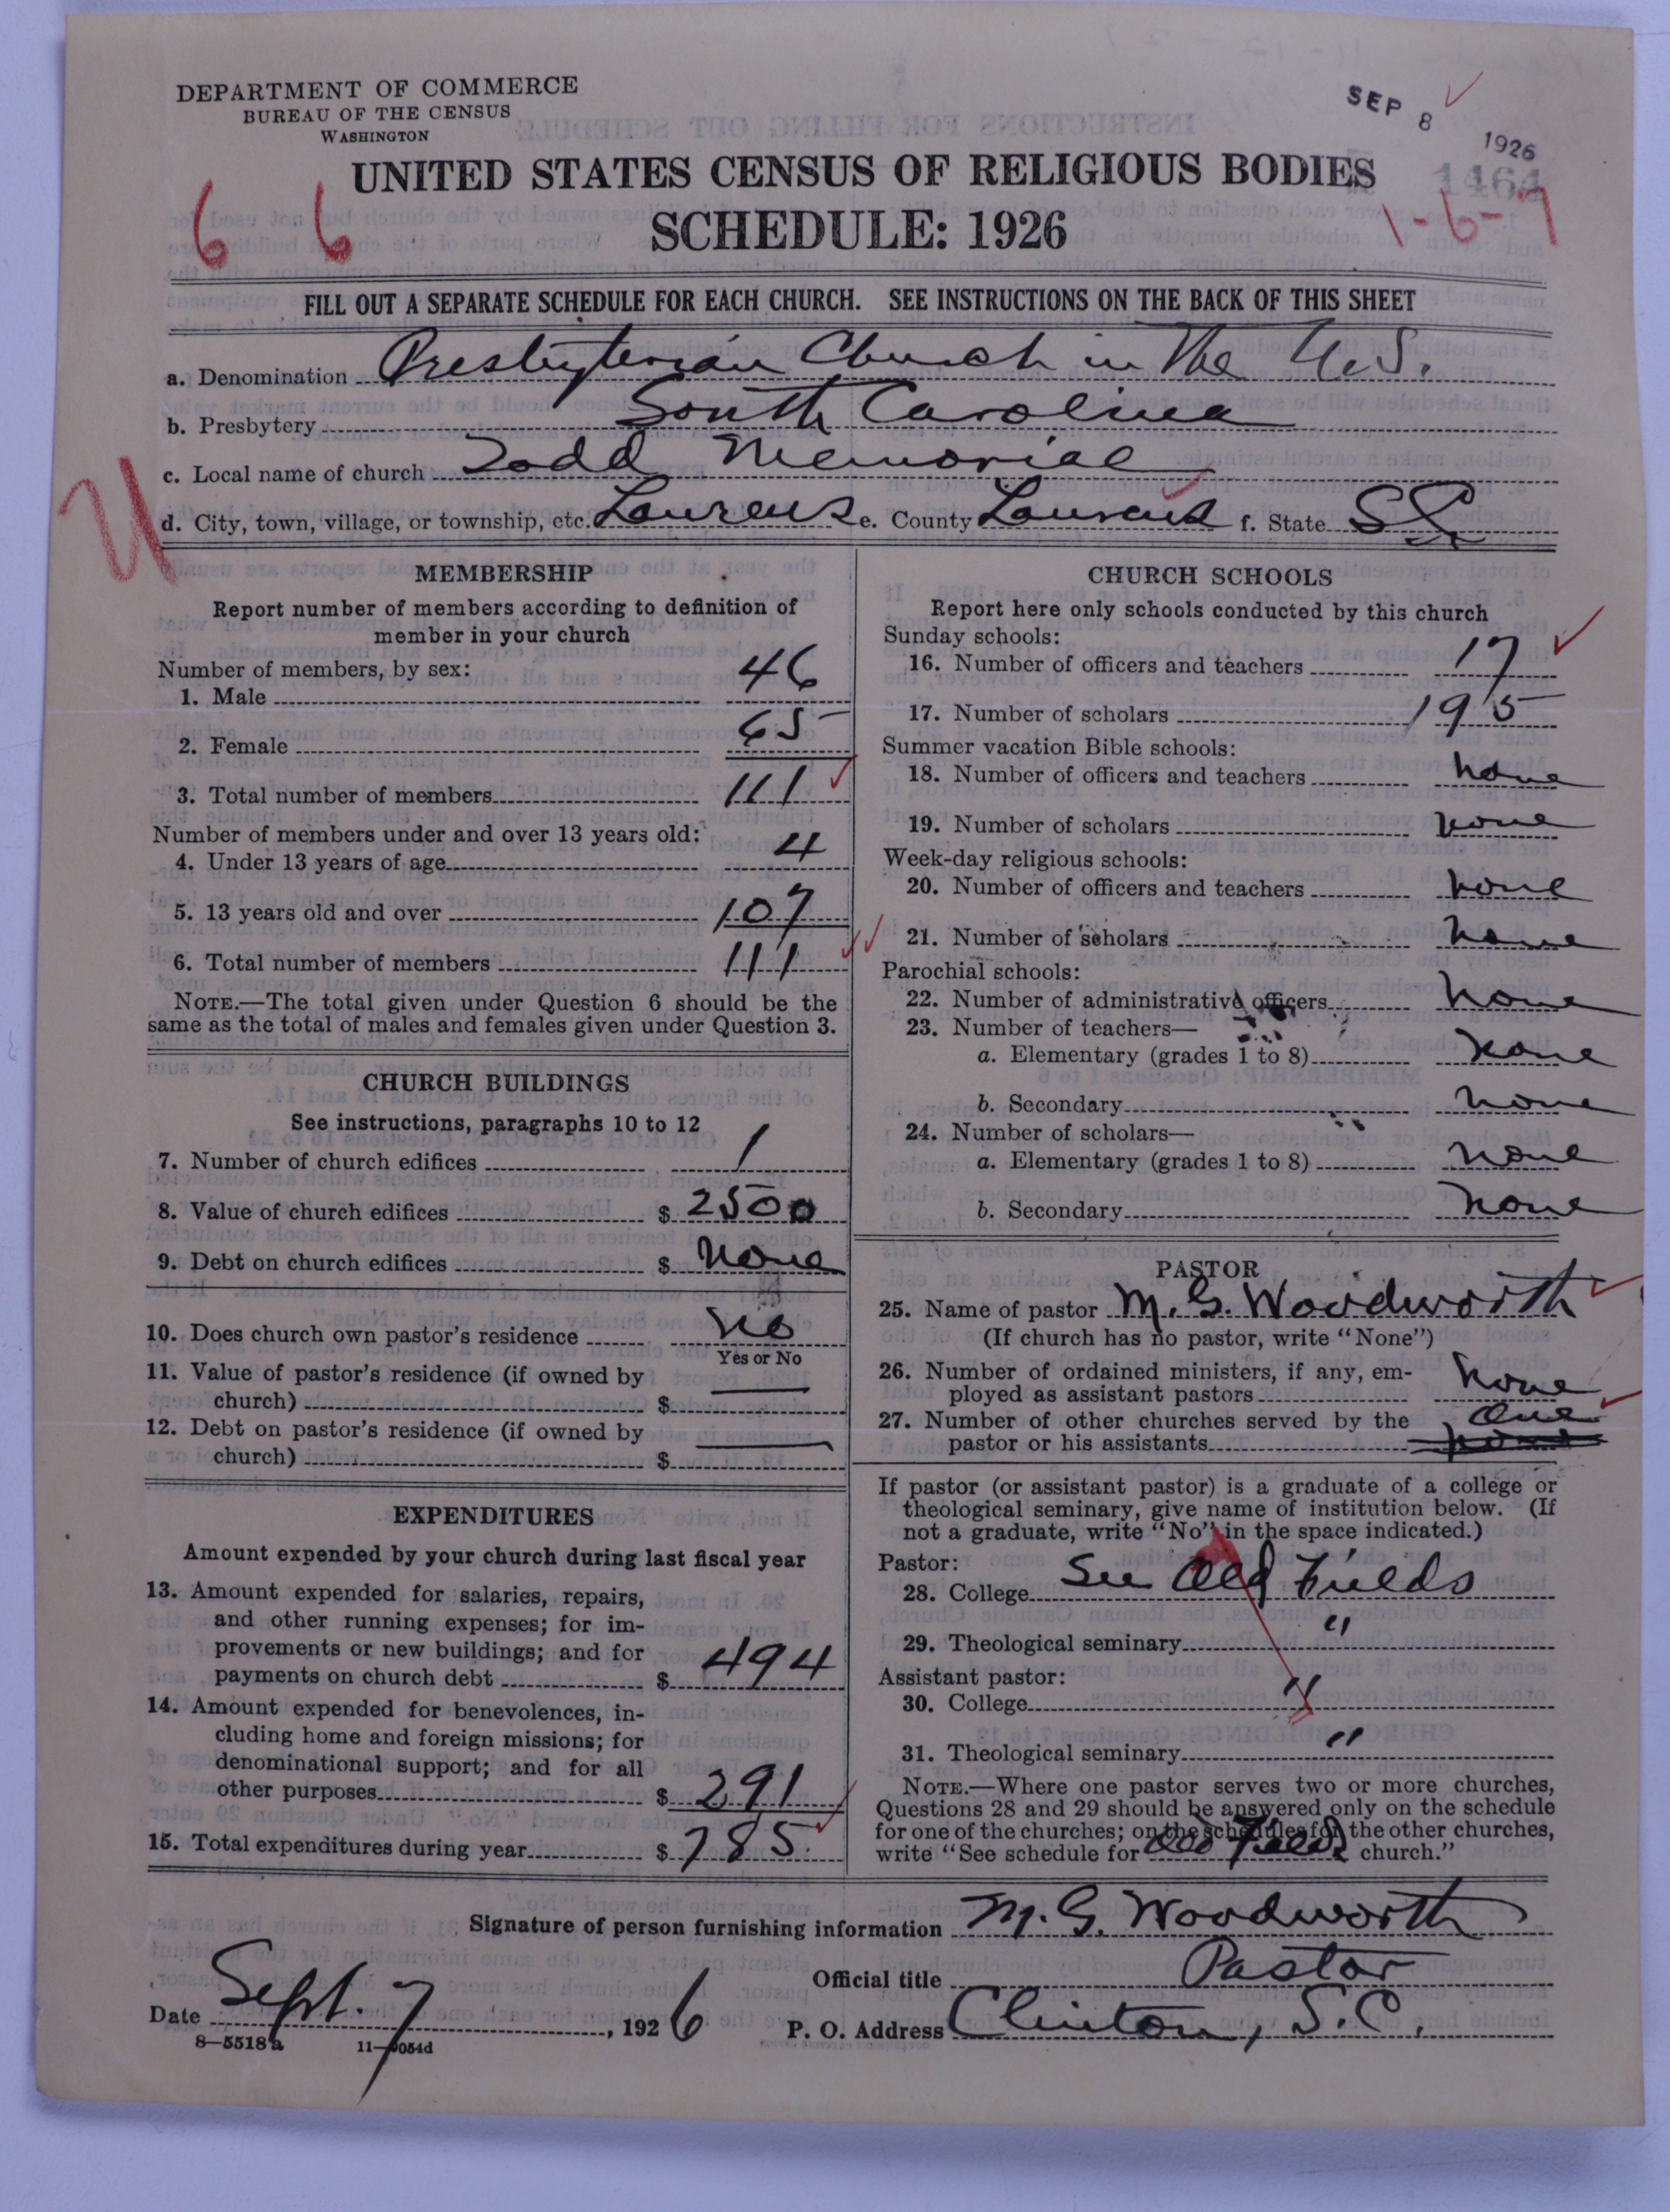 DEPARTMENT OF COMMERCE
BUREAU OF THE CENSUS
WASHINGTON
SEP 8 1926
1464
UNITED STATES CENSUS OF RELIGIOUS BODIES
SCHEDULE: 1926
6 6
1-6-7
FILL OUT A SEPARATE SCHEDULE FOR EACH CHURCH. SEE INSTRUCTIONS ON THE BACK OF THIS SHEET
a. Denomination Presbyterian Church in The U.S.
b. Presbytery South Carolina
c. Local name of church Todd Memorial
d. City, town, village, or township, etc. Laurens e. County Laurens f. State S.C.
MEMBERSHIP
Report number of members according to definition of
member in your church
Number of members, by sex:
1. Male 46
2. Female 65
3. Total number of members 111
Number of members under and over 13 years old:
4. Under 13 years of age 4
5. 13 years old and over 107
6. Total number of members 111
NOTE.—The total given under Question 6 should be the
same as the total of males and females given under Question 3.
CHURCH BUILDINGS
See instructions, paragraphs 10 to 12
7. Number of church edifices 1
8. Value of church edifices $ 2500
9. Debt on church edifices $ None
10. Does church own pastor's residence No
Yes or No
11. Value of pastor's residence (if owned by
church) $
12. Debt on pastor's residence (if owned by
church) $
EXPENDITURES
Amount expended by your church during last fiscal year
13. Amount expended for salaries, repairs,
and other running expenses; for im-
provements or new buildings; and for
payments on church debt $ 494
14. Amount expended for benevolences, in-
cluding home and foreign missions; for
denominational support; and for all
other purposes $ 291
15. Total expenditures during year $ 785
CHURCH SCHOOLS
Report here only schools conducted by this church
Sunday schools:
16. Number of officers and teachers 17
17. Number of scholars 195
Summer vacation Bible schools:
18. Number of officers and teachers none
19. Number of scholars none
Week-day religious schools:
20. Number of officers and teachers none
21. Number of scholars none
Parochial schools:
22. Number of administrative officers none
23. Number of teachers—
a. Elementary (grades 1 to 8) none
b. Secondary none
24. Number of scholars—
a. Elementary (grades 1 to 8) none
b. Secondary none
PASTOR
25. Name of pastor M. G. Woodworth
(If church has no pastor, write "None")
26. Number of ordained ministers, if any, em-
ployed as assistant pastors none
27. Number of other churches served by the One
pastor or his assistants none
If pastor (or assistant pastor) is a graduate of a college or
theological seminary, give name of institution below. (If
not a graduate, write "No" in the space indicated.)
Pastor:
28. College See Old Fields
29. Theological seminary "
Assistant pastor:
30. College "
31. Theological seminary "
NOTE.—Where one pastor serves two or more churches,
Questions 28 and 29 should be answered only on the schedule
for one of the churches; on the schedules for the other churches,
write "See schedule for Old Fields church."
Signature of person furnishing information M. G. Woodworth
Official title Pastor
Date Sept. 7, 1926 P. O. Address Clinton, S.C.
8—5518a 11—9054d